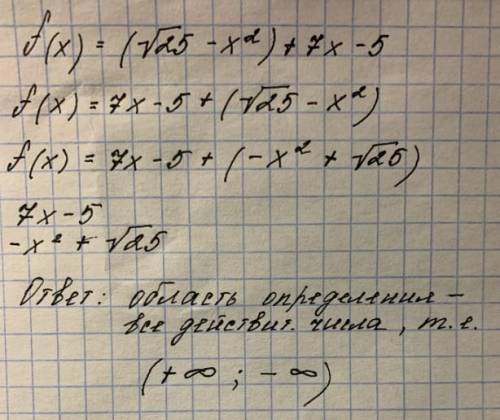 f(x) = (√25 - x²) + 7x - 5
f(x) = 7x - 5 + (√25 - x²)
f(x) = 7x - 5 + (-x² + √25)
7x - 5
-x² + √25
Ответ: область определения -
все действит. числа, т.е.
(+∞ ; -∞)